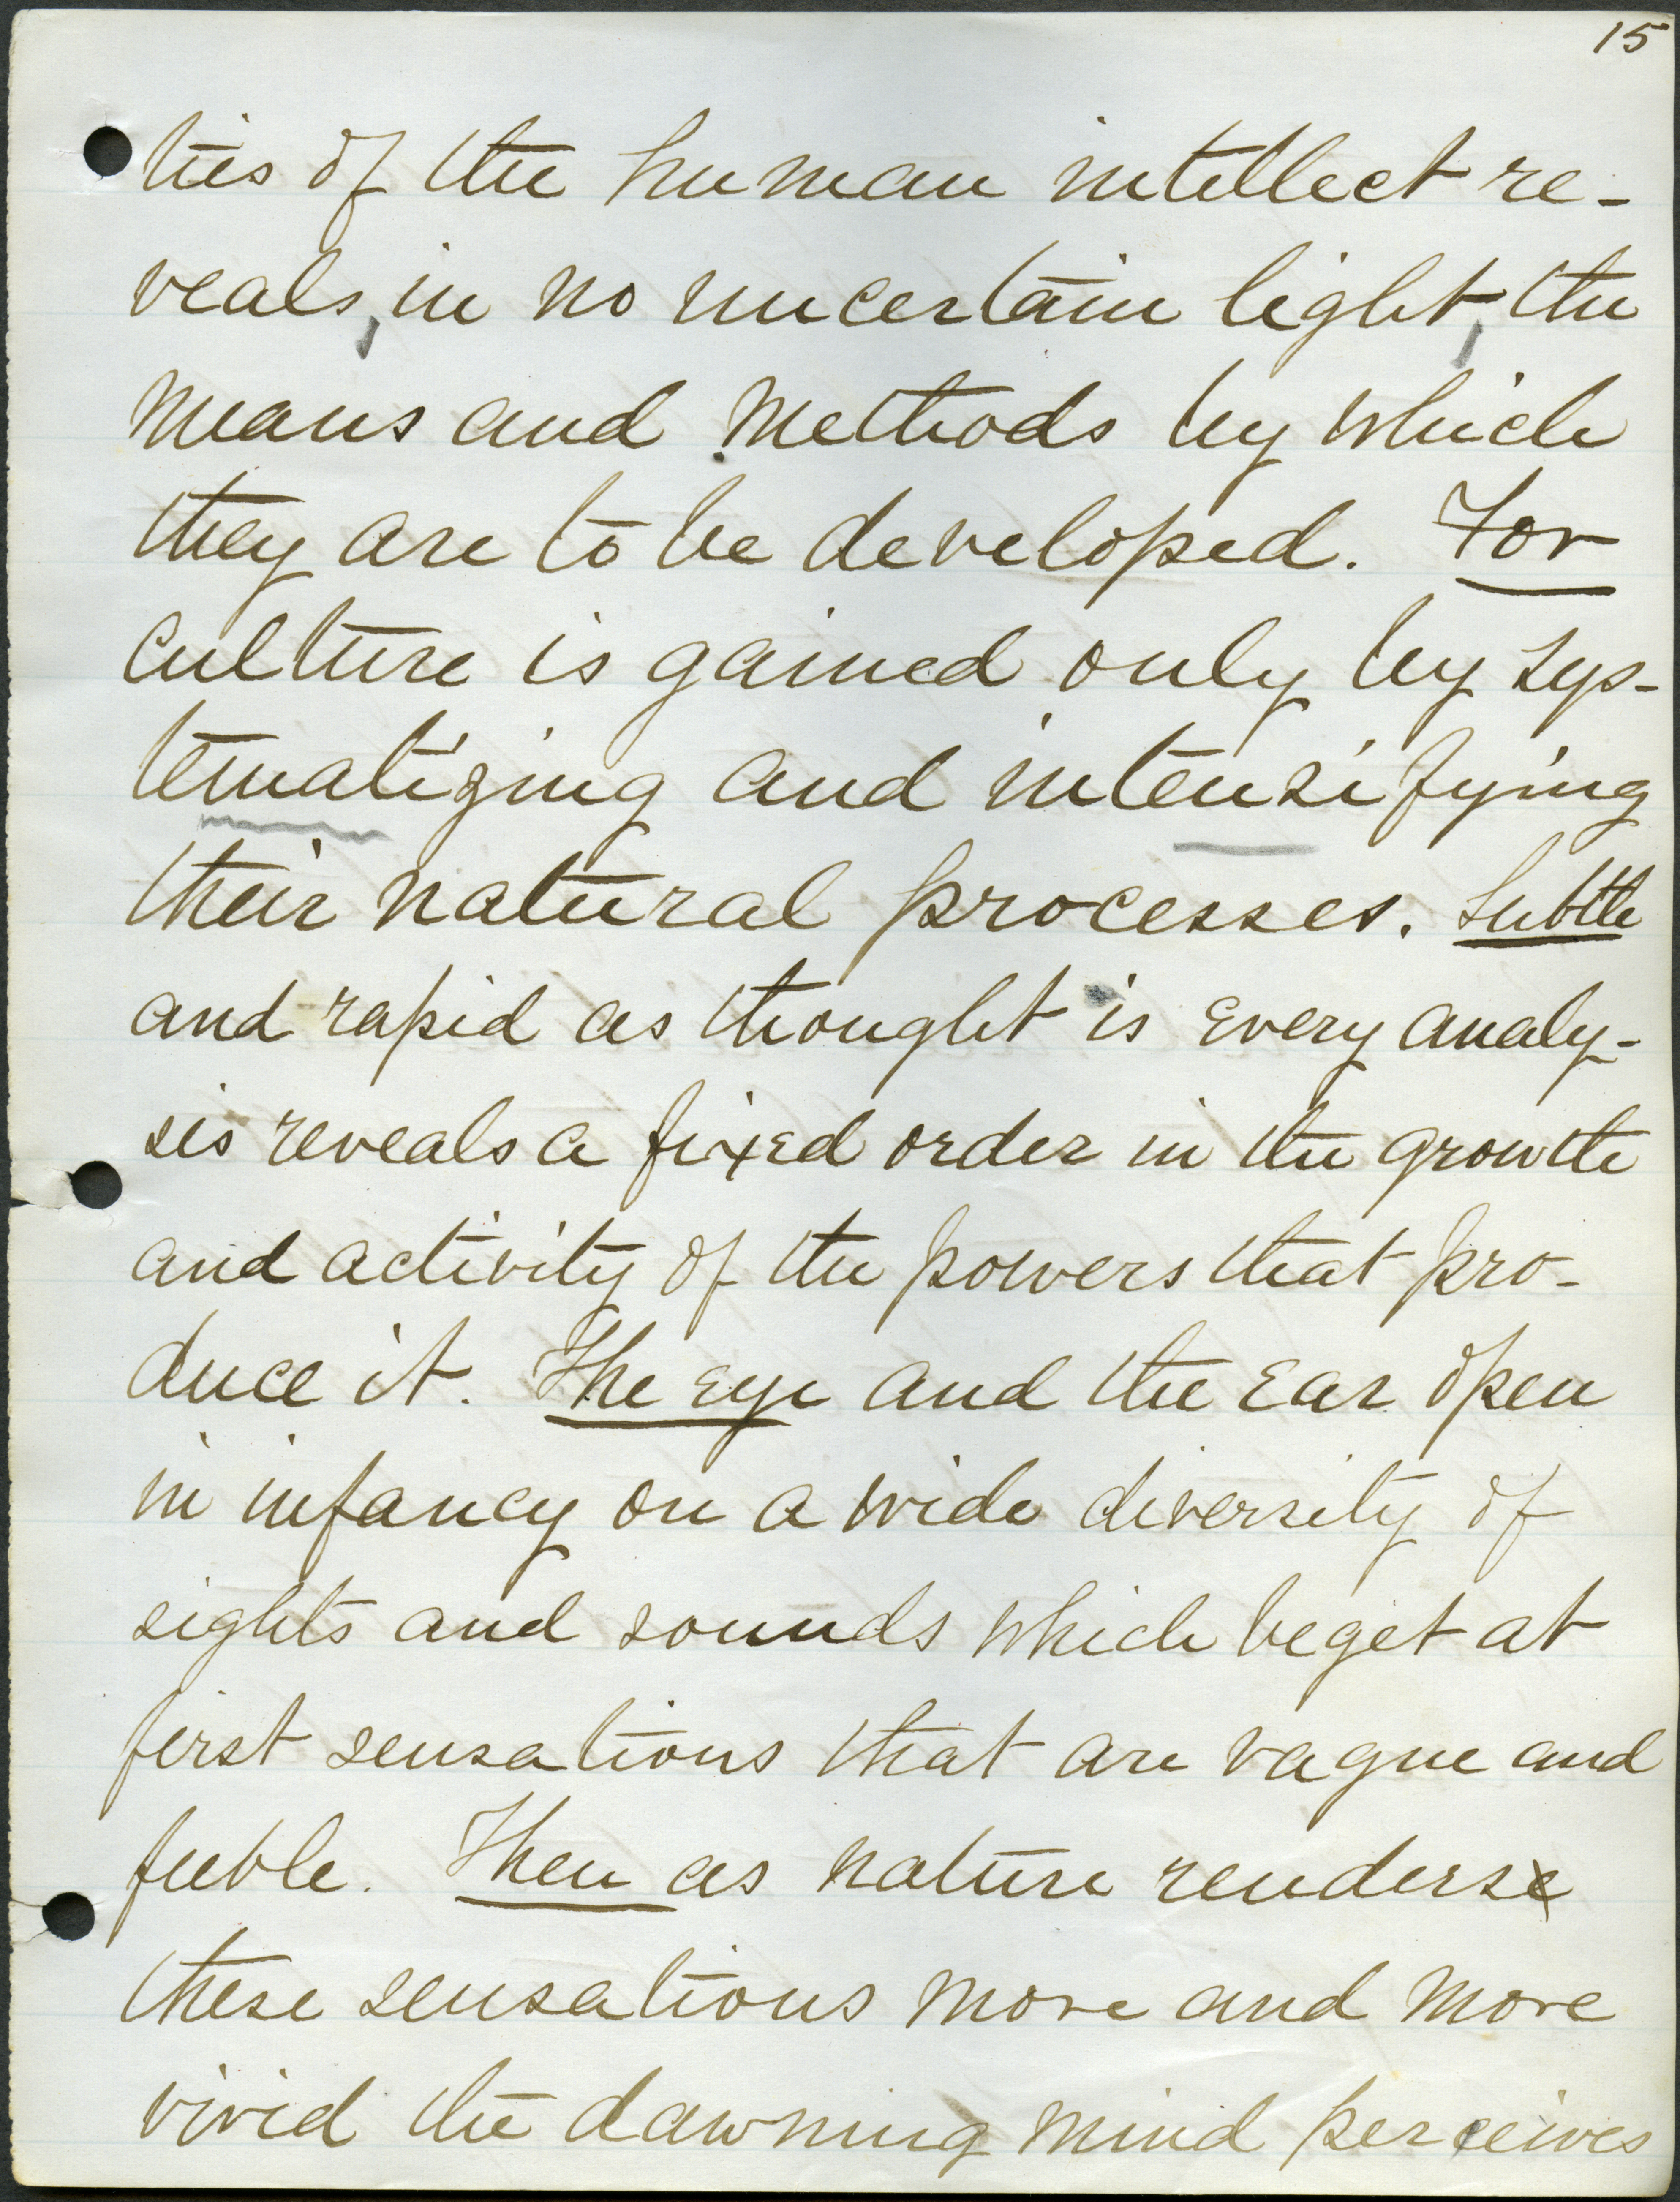 15
ties of the human intellect re-
veals, in no uncertain light, the
means and methods by which
they are to be developed. For
culture is gained only by sys-
tematizing and intensifying
their natural processes. Subtle
and rapid as thought is every analy-
sis reveals a fixed order in the growth
and activity of the powers that pro-
duce it. The eye and the ear open
in infancy on a wide diversity of
sights and sounds which beget at
first sensations that are vague and
feeble. Then as nature renders
these sensations more and more
vivid the dawning mind perceives